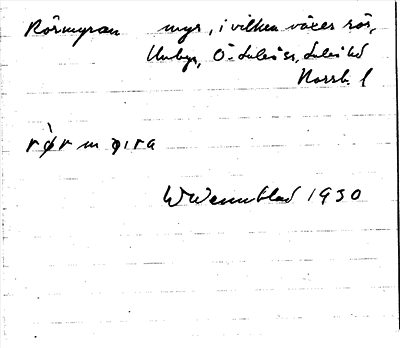 Rörmyran myr, i vilken växer rör,
Unbyn, Ö-Luleå sn, Luleå hd
Norrb. l
W Wennblad 1930